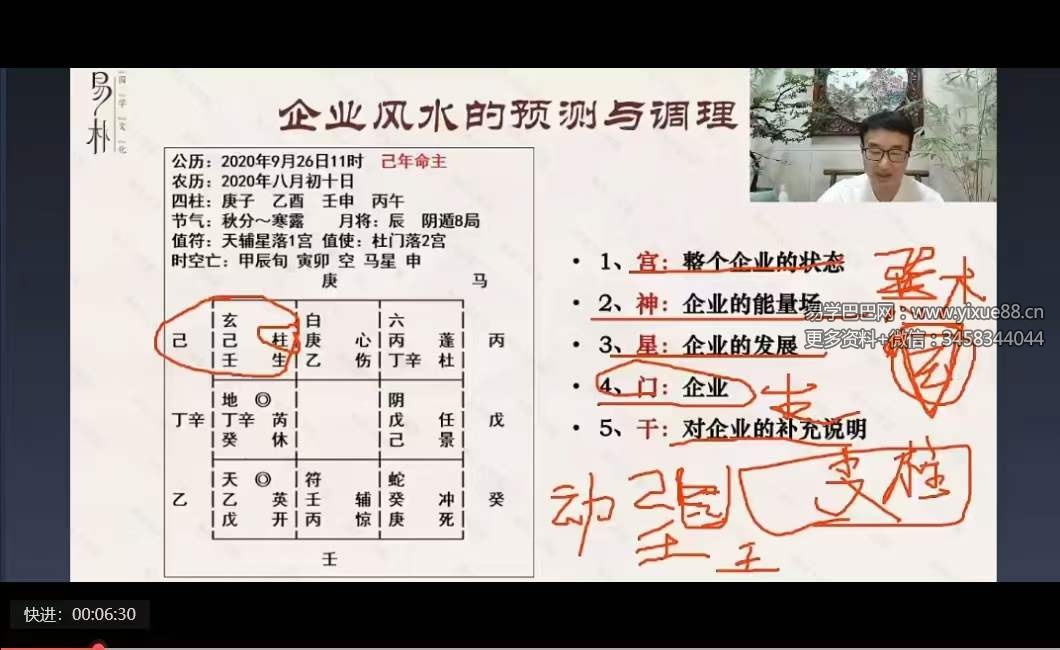 易朴
国学文化
企业风水的预测与调理
公历：2020年9月26日11时 己年命主
农历：2020年八月初十日
四柱：庚子 乙酉 壬申 丙午
节气：秋分～寒露 月将：辰 阴遁8局
值符：天辅星落1宫 值使：杜门落2宫
时空亡：甲辰旬 寅卯 空 马星 申
庚 马
玄 白 六
己 己 柱 庚 心 丙 蓬 丙
壬 生 乙 伤 丁辛 杜
地 ◎ 阴
丁辛 丁辛 芮 戊 任 戊
癸 休 己 景
天 ◎ 符 蛇
乙 乙 英 壬 辅 癸 冲 癸
戊 开 丙 惊 庚 死
壬
• 1、宫：整个企业的状态
• 2、神：企业的能量场
• 3、星：企业的发展
• 4、门：企业
• 5、干：对企业的补充说明
易学巴巴网：www.yixue88.cn
更多资料+微信：3458344044
木
生
动
己
壬
王
变 柱
快进：00:06:30